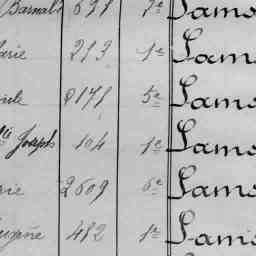 Barnab 691 7e Lamo
arie 213 1e Lamo
2171 5e Lamo
Joseph 104 1e Lamo
rie 2609 6e Lamo
Eugène 482 1e Lami